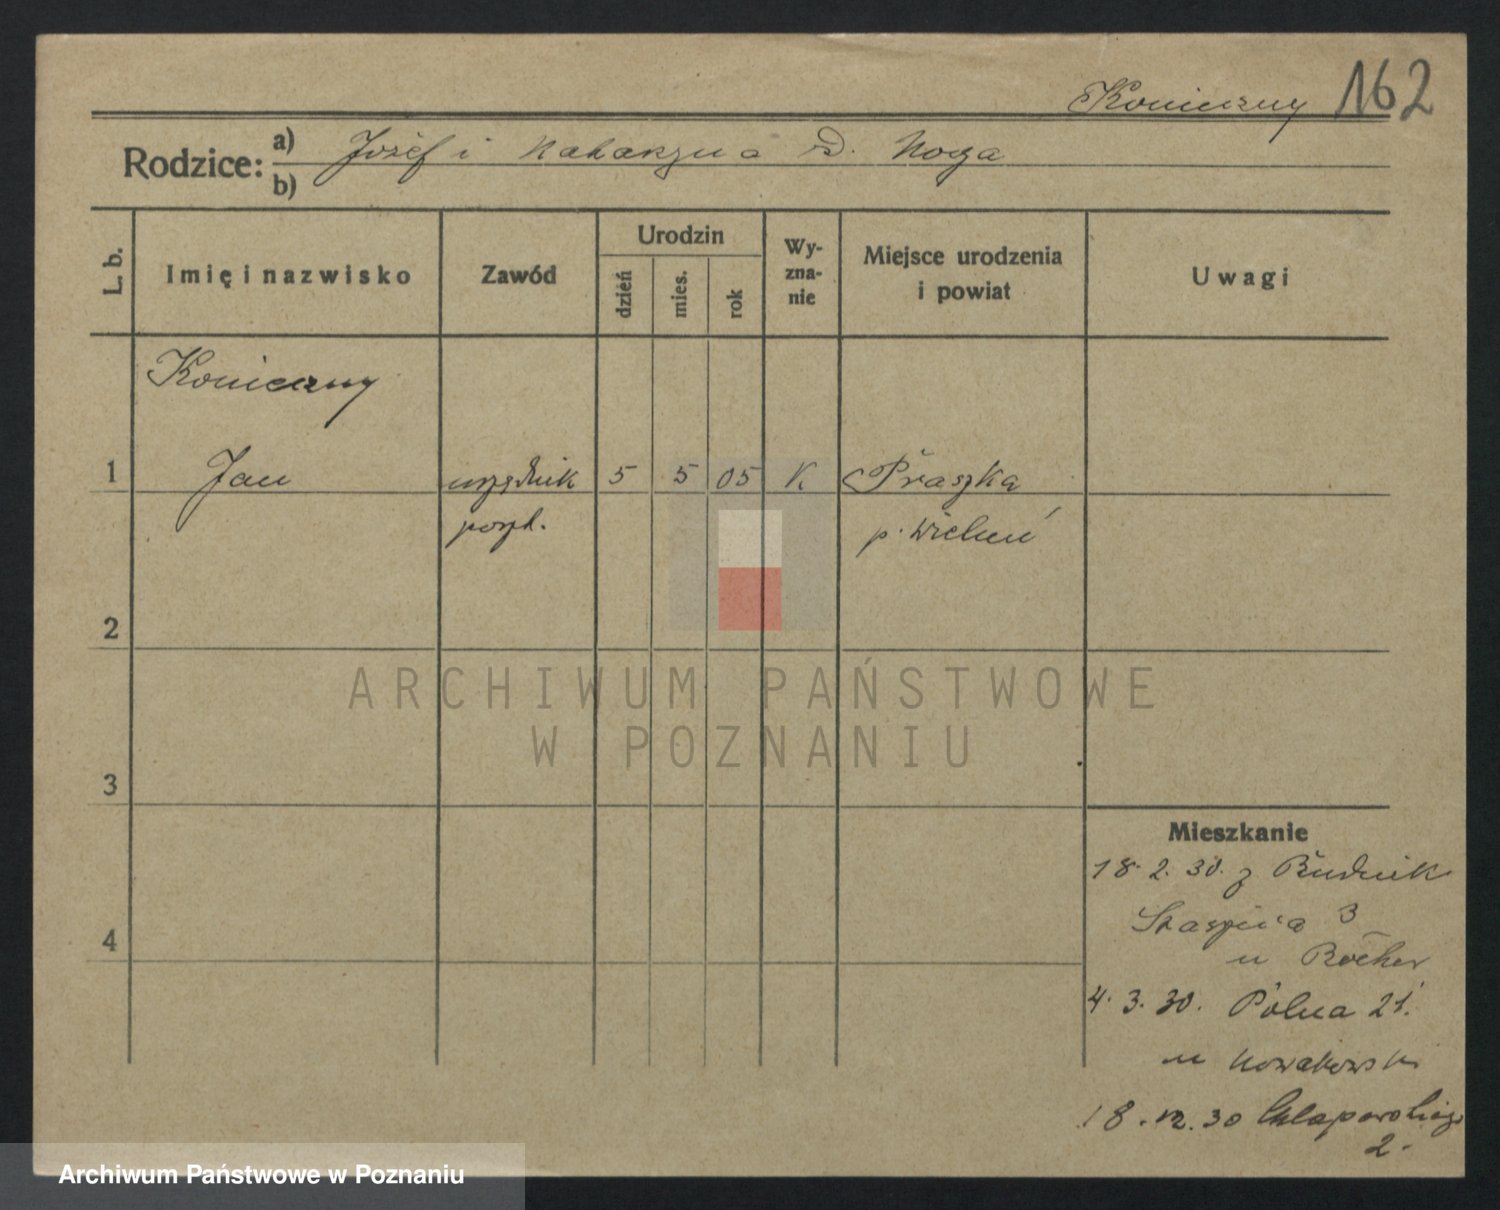 Konieczny 162
Rodzice: a) Józef i Katarzyna z d. Noga
b)
L. b.
Imię i nazwisko
Zawód
Urodzin
dzień
mies.
rok
Wy-
zna-
nie
Miejsce urodzenia
i powiat
Uwagi
Konieczny
1 Jan urzędnik 5 5 05 K Praszka
poczt. p. Wieluń
2
ARCHIWUM PAŃSTWOWE
W POZNANIU
3
Mieszkanie
18. 2. 30. z Budnik
Staszica 3
4
u Böcher
4. 3. 30. Polna 21.
u Nowakowski
18. 12. 30 Chłapowskiego
2.
Archiwum Państwowe w Poznaniu